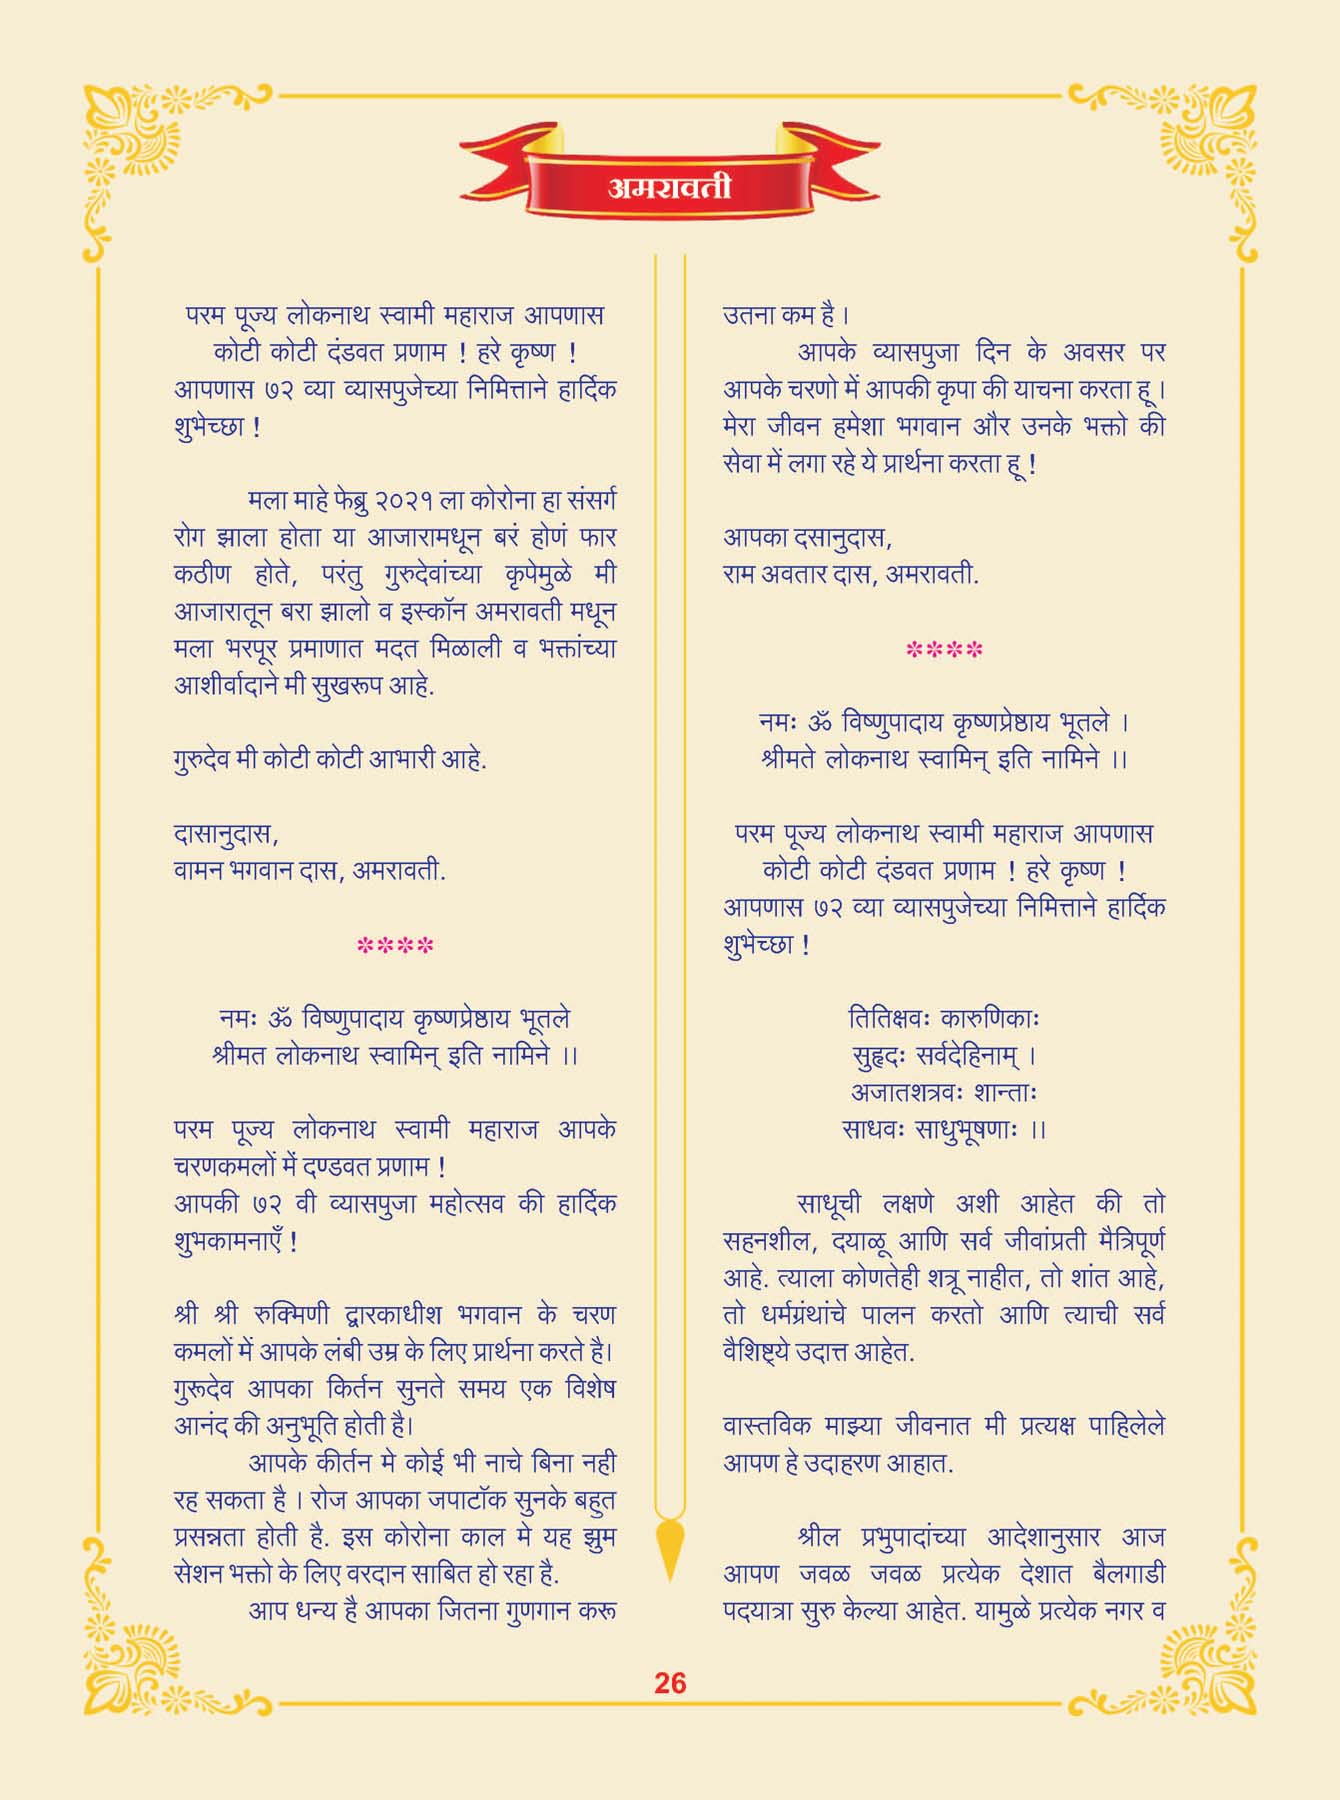 अमरावती
परम पूज्य लोकनाथ स्वामी महाराज आपणास
कोटी कोटी दंडवत प्रणाम ! हरे कृष्ण !
आपणास ७२ व्या व्यासपुजेच्या निमित्ताने हार्दिक
शुभेच्छा !
मला माहे फेब्रु २०२१ ला कोरोना हा संसर्ग
रोग झाला होता या आजारामधून बरं होणं फार
कठीण होते, परंतु गुरुदेवांच्या कृपेमुळे मी
आजारातून बरा झालो व इस्कॉन अमरावती मधून
मला भरपूर प्रमाणात मदत मिळाली व भक्तांच्या
आशीर्वादाने मी सुखरूप आहे.
गुरुदेव मी कोटी कोटी आभारी आहे.
दासानुदास,
वामन भगवान दास, अमरावती.
****
नमः ॐ विष्णुपादाय कृष्णप्रेष्ठाय भूतले
श्रीमत लोकनाथ स्वामिन् इति नामिने ।।
परम पूज्य लोकनाथ स्वामी महाराज आपके
चरणकमलों में दण्डवत प्रणाम !
आपकी ७२ वी व्यासपुजा महोत्सव की हार्दिक
शुभकामनाएँ !
श्री श्री रुक्मिणी द्वारकाधीश भगवान के चरण
कमलों में आपके लंबी उम्र के लिए प्रार्थना करते है।
गुरूदेव आपका किर्तन सुनते समय एक विशेष
आनंद की अनुभूति होती है।
आपके कीर्तन मे कोई भी नाचे बिना नही
रह सकता है । रोज आपका जपाटॉक सुनके बहुत
प्रसन्नता होती है. इस कोरोना काल मे यह झुम
सेशन भक्तो के लिए वरदान साबित हो रहा है.
आप धन्य है आपका जितना गुणगान करू
उतना कम है ।
आपके व्यासपुजा दिन के अवसर पर
आपके चरणो में आपकी कृपा की याचना करता हू ।
मेरा जीवन हमेशा भगवान और उनके भक्तो की
सेवा में लगा रहे ये प्रार्थना करता हू !
आपका दसानुदास,
राम अवतार दास, अमरावती.
****
नमः ॐ विष्णुपादाय कृष्णप्रेष्ठाय भूतले ।
श्रीमते लोकनाथ स्वामिन् इति नामिने ।।
परम पूज्य लोकनाथ स्वामी महाराज आपणास
कोटी कोटी दंडवत प्रणाम ! हरे कृष्ण !
आपणास ७२ व्या व्यासपुजेच्या निमित्ताने हार्दिक
शुभेच्छा !
तितिक्षवः कारुणिकाः
सुहृदः सर्वदेहिनाम् ।
अजातशत्रवः शान्ताः
साधवः साधुभूषणाः ।।
साधूची लक्षणे अशी आहेत की तो
सहनशील, दयाळू आणि सर्व जीवांप्रती मैत्रिपूर्ण
आहे. त्याला कोणतेही शत्रू नाहीत, तो शांत आहे,
तो धर्मग्रंथांचे पालन करतो आणि त्याची सर्व
वैशिष्ट्ये उदात्त आहेत.
वास्तविक माझ्या जीवनात मी प्रत्यक्ष पाहिलेले
आपण हे उदाहरण आहात.
श्रील प्रभुपादांच्या आदेशानुसार आज
आपण जवळ जवळ प्रत्येक देशात बैलगाडी
पदयात्रा सुरु केल्या आहेत. यामुळे प्रत्येक नगर व
26